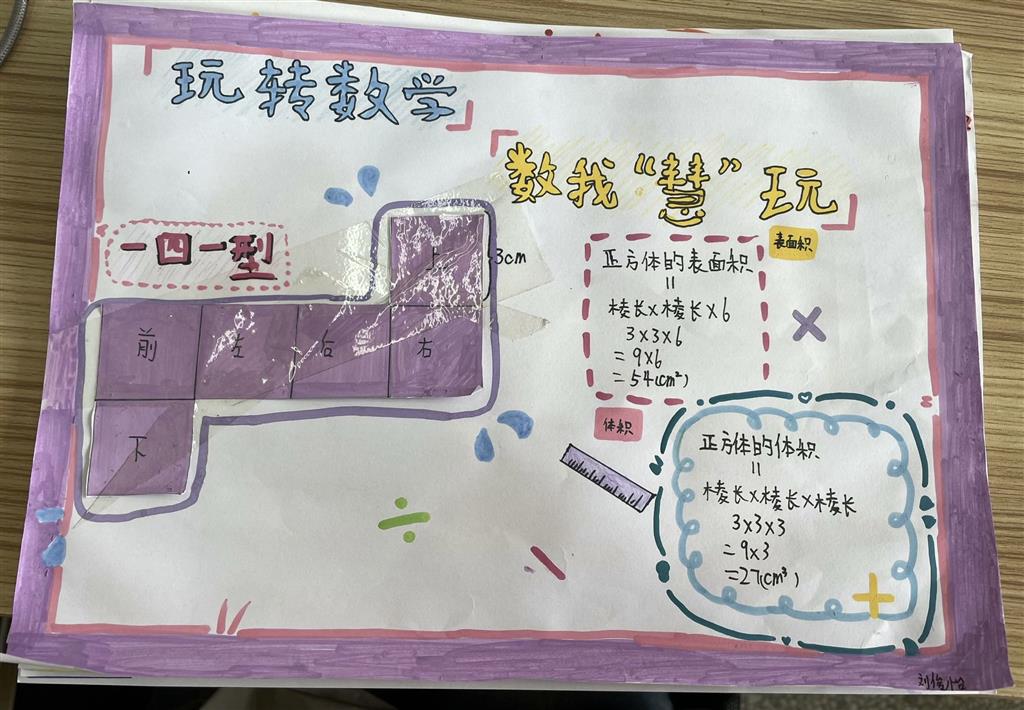 「玩转数学」
「数我“慧”玩」
一四一型
上
3cm
前 左 后 右
下
表面积
正方体的表面积
=
棱长×棱长×6
3×3×6
=9×6
=54(cm²)
体积
正方体的体积
=
棱长×棱长×棱长
3×3×3
=9×3
=27(cm³)